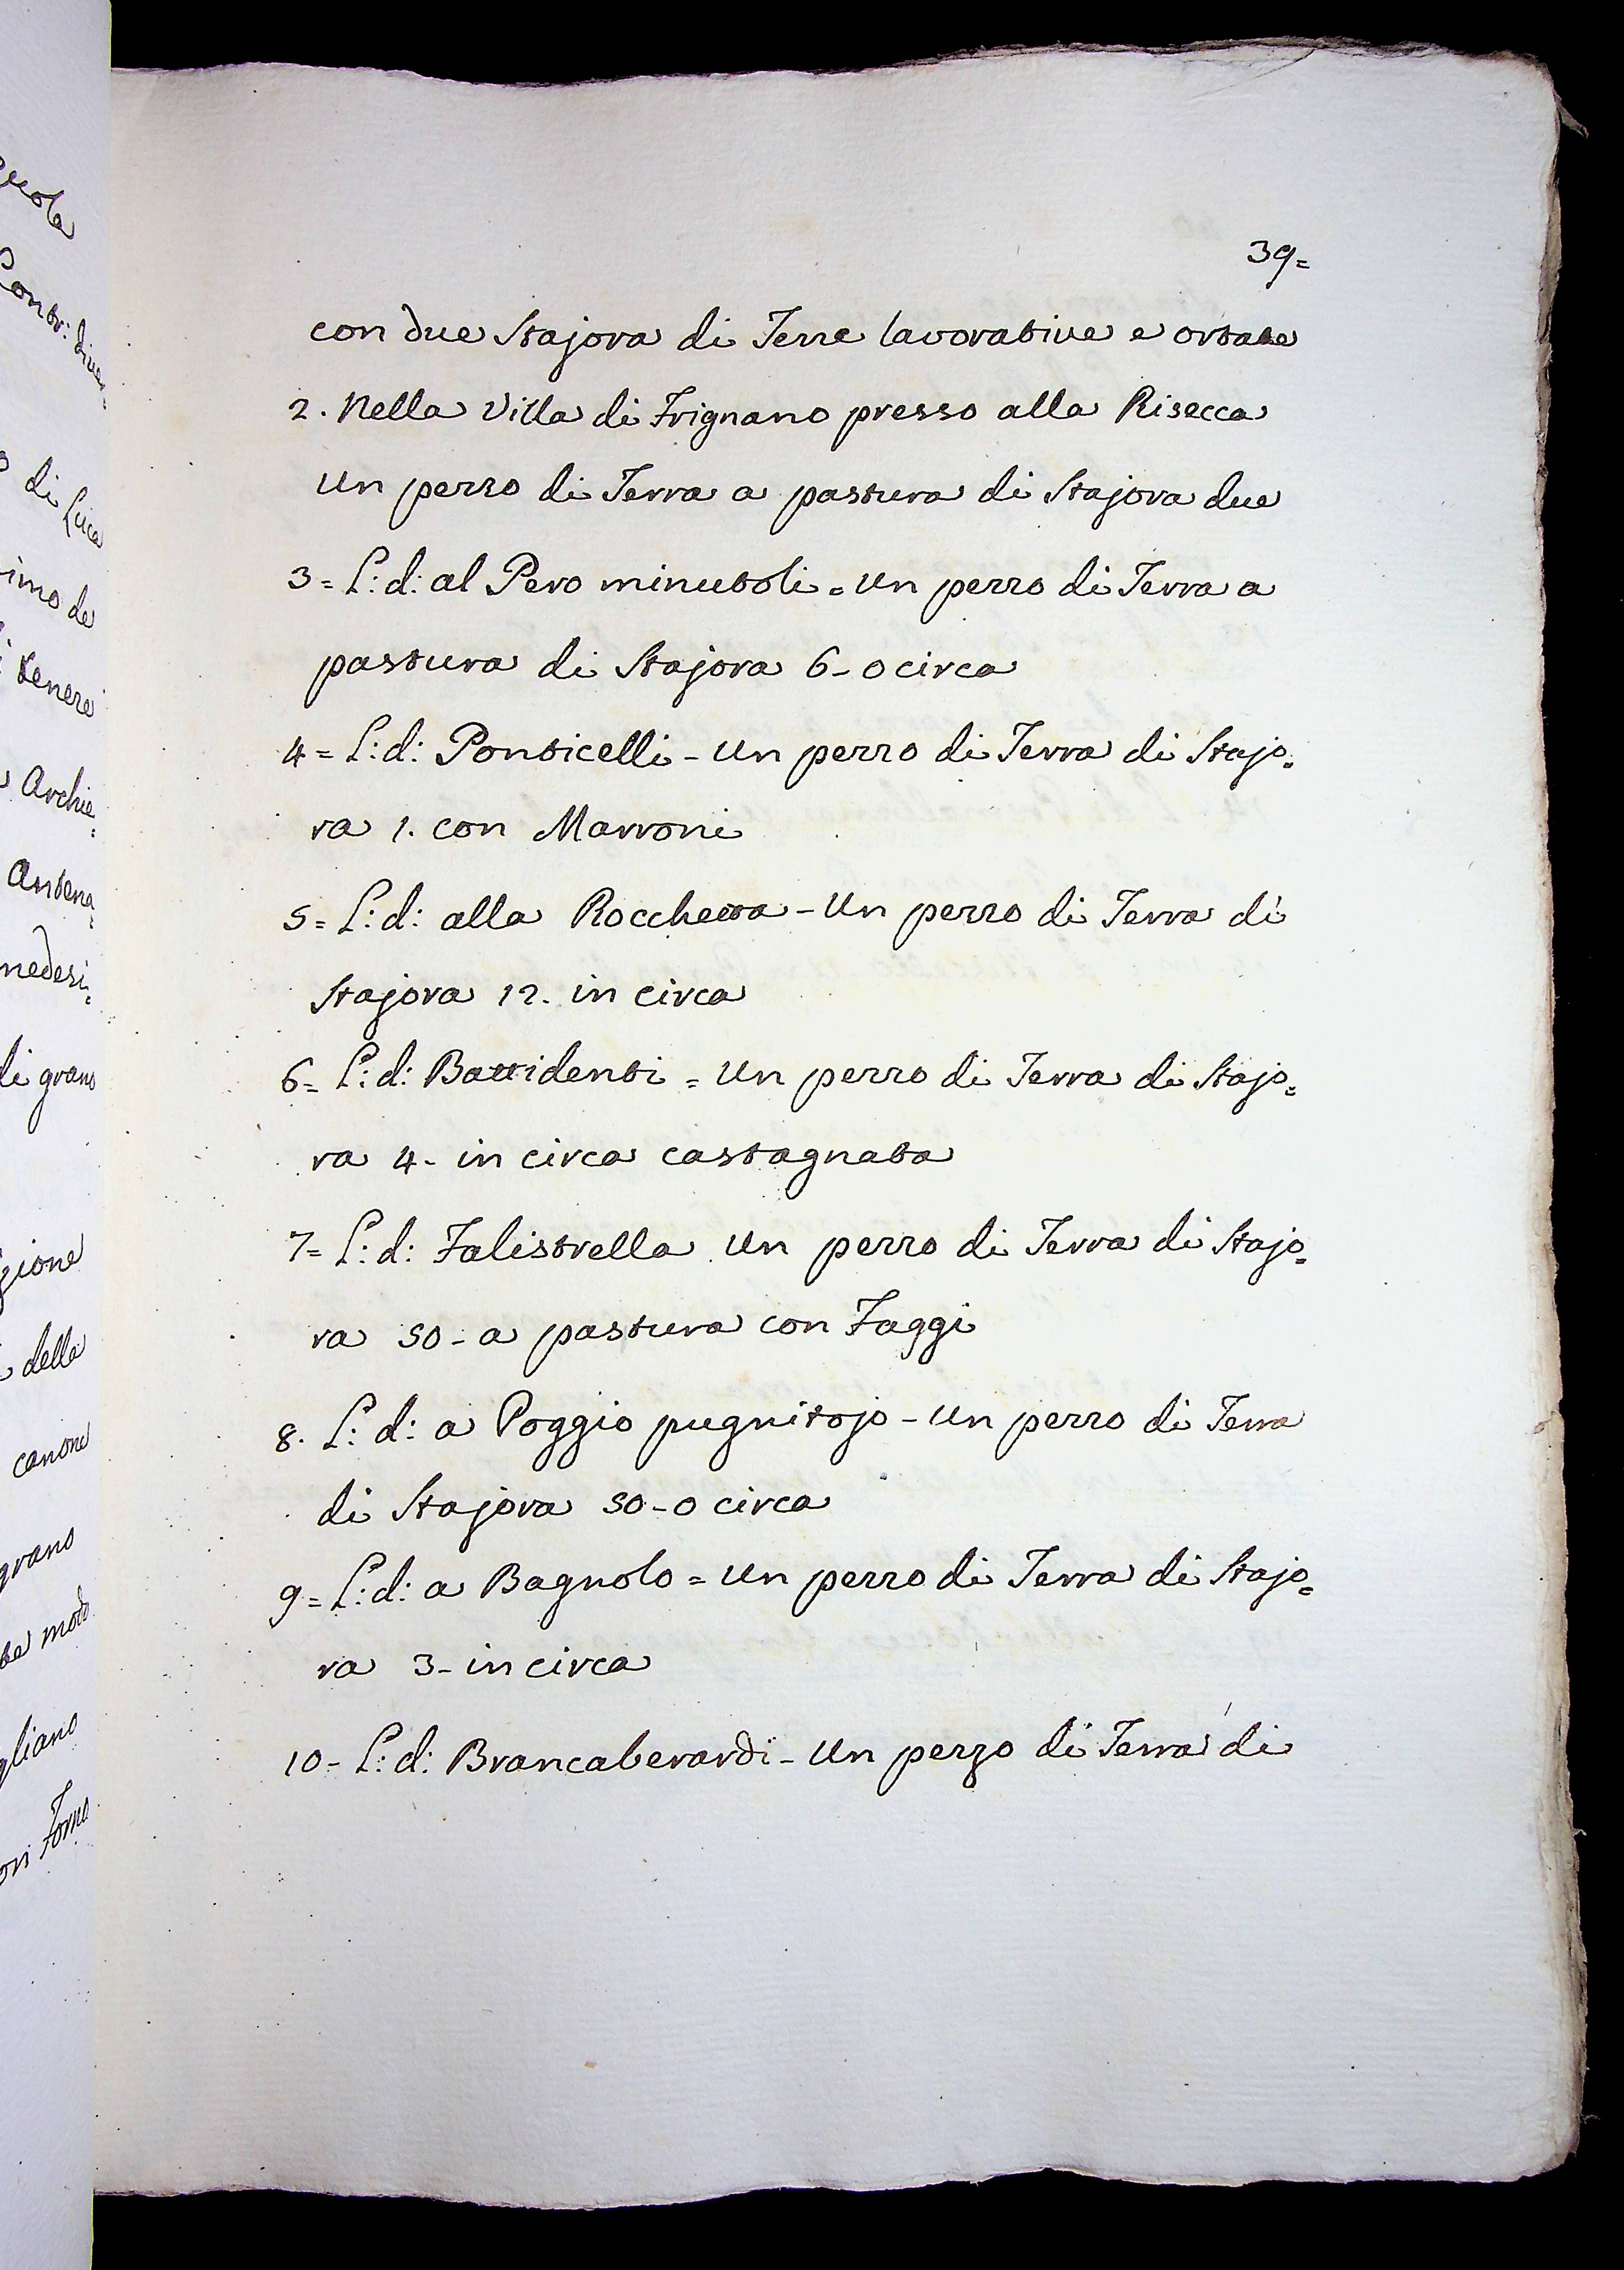 39=
con due Stajora di Terre lavorative e ortate
2. Nella Villa di Frignano presso alla Risecca
un pezzo di Terra a pastura di Stajora due
3= L: d: al Pero minutoli = un pezzo di Terra a
pastura di Stajora 6 - o circa
4= L: d: Ponticelli - un pezzo di Terra di Stajo=
ra 1. con Marroni
5= L: d: alla Rocchetta - un pezzo di Terra di
Stajora 12. in circa
6= L: d: Battidenti = un pezzo di Terra di Stajo=
ra 4 - in circa castagnata
7= L: d: Falistrella un pezzo di Terra di Stajo=
ra 50 - a pastura con Faggi
8. L: d: a Poggio pugnitojo - un pezzo di Terra
di Stajora 50 - o circa
9= L: d: a Bagnolo = un pezzo di Terra di Stajo=
ra 3 - in circa
10 - L: d: Brancaberardi - un pezzo di Terra di
di Luca
tenere
Archie=
medesi=
di grano
della
canone
grano